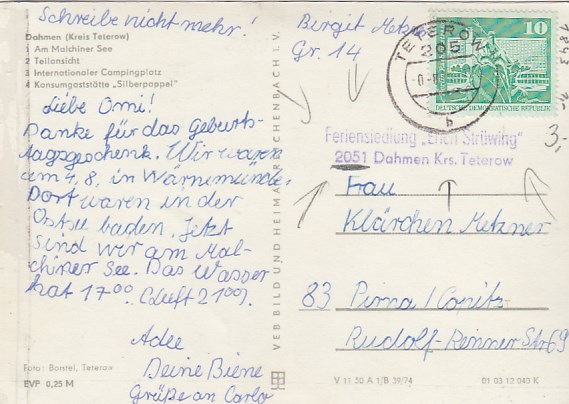 Schreibe nicht mehr!
Dahmen (Kreis Teterow)
1 Am Malchiner See
2 Teilansicht
3 Internationaler Campingplatz
4 Konsumgaststätte „Silberpappel"
Liebe Omi!
Danke für das Geburts-
tagsgeschenk. Wir waren
am 4.8. in Warnemünde.
Dort waren in der
Ostsee baden. Jetzt
sind wir am Mal-
chiner See. Das Wasser
hat 17°°. (Luft 21°°).
Adee
Deine Biene
Grüße an Carlo
Foto: Bontel, Teterow
EVP 0,25 M
VEB BILD UND HEIMAT REICHENBACH I. V.
Birgit Metzner
Gr. 14
TETEROW
205
b
10
DEUTSCHE DEMOKRATISCHE REPUBLIK
3,-
Feriensiedlung „Erich Strüwing"
2051 Dahmen Krs. Teterow
Frau
Klärchen Metzner
83 Pirna/Copitz
Rudolf-Renner Str 69
V 11 50 A 1/B 39/74
01 03 12 043 K